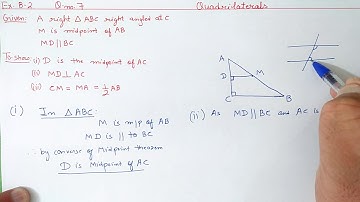 Ex. 8.2 Q no. 7 Quadrilaterals
Given: A right △ ABC right angled at C
M is midpoint of AB
MD || BC
To show: (i) D is the midpoint of AC
(ii) MD ⊥ AC
(iii) CM = MA = 1/2 AB
A
D
M
C
B
(i) In △ ABC:
M is m/p of AB
MD is || to BC
∴ by converse of Midpoint theorem
D is Midpoint of AC
(ii) As MD || BC and AC is